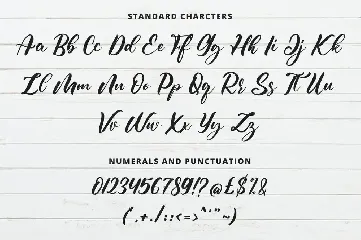 STANDARD CHARCTERS
Aa Bb Cc Dd Ee Ff Gg Hh Ii Jj Kk
Ll Mm Nn Oo Pp Qq Rr Ss Tt Uu
Vv Ww Xx Yy Zz
NUMERALS AND PUNCTUATION
0123456789!?@£$%&
(,+./:;<=>^'"~)